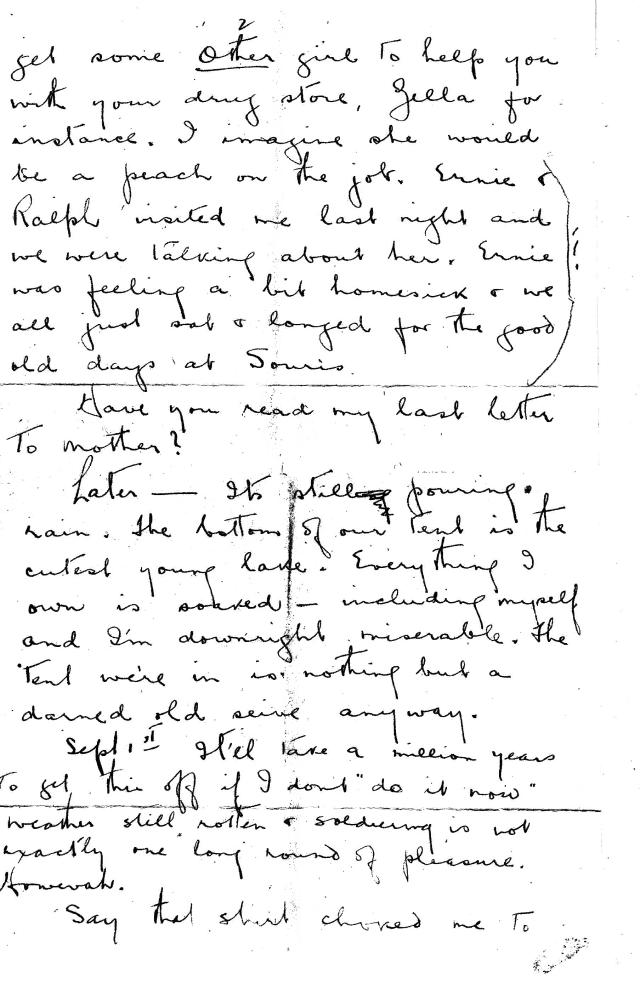 2
get some other girl to help you
with your drug store, Zella for
instance. I imagine she would
be a peach on the job. Ernie &
Ralph visited me last night and
we were talking about her. Ernie
was feeling a bit homesick & we
all just sat & longed for the good
old days at Souris.
!
Have you read my last letter
to mother?
Later — Its still pouring
rain. The bottom of our tent is the
cutest young lake. Everything I
own is soaked — including myself
and I'm downright miserable. The
tent we're in is nothing but a
darned old seive anyway.
Sept. 1st It'el take a million years
to get this off if I dont "do it now"
weather still rotten & soldiering is not
exactly one long round of pleasure.
Howevah.
Say that shirt choked me to